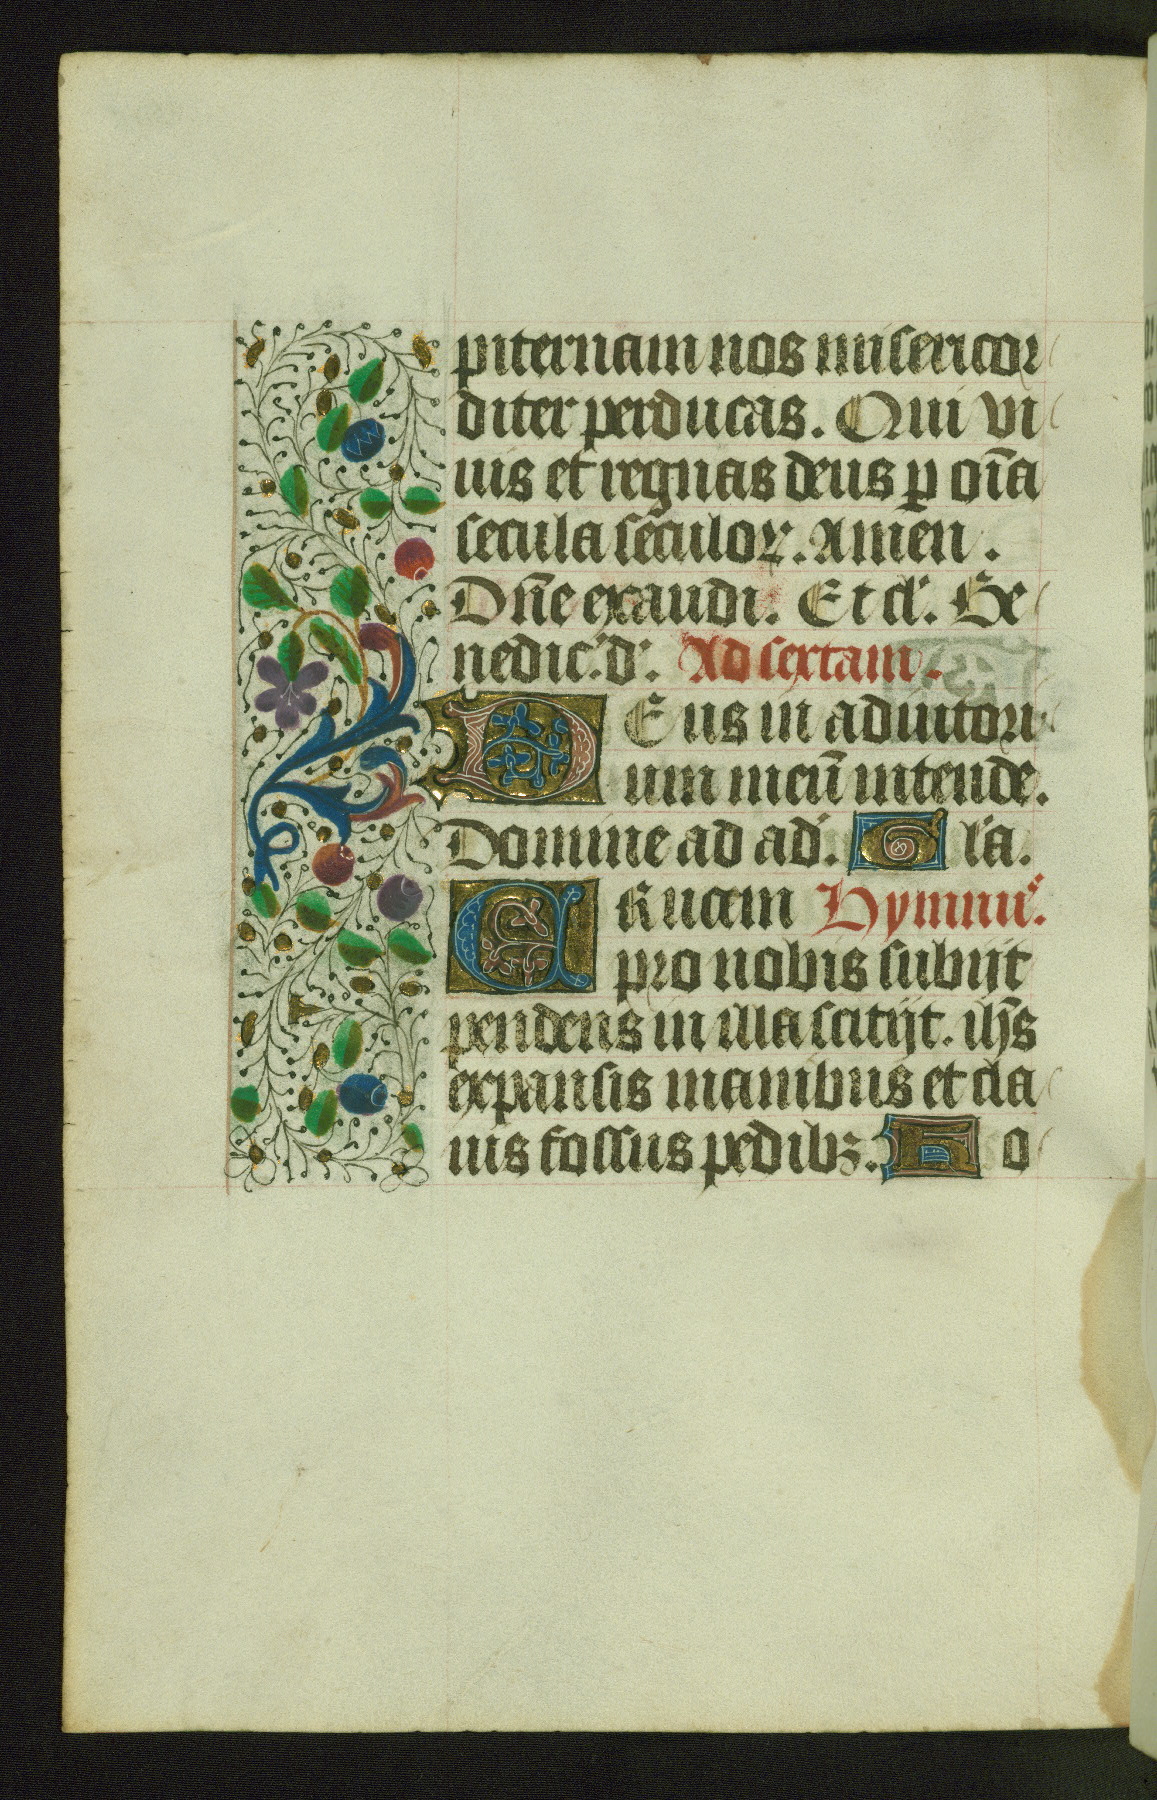 piternam nos misericor
diter perducas. Qui vi
uis et regnas deus ꝑ oı̅a
secula sec̅uloꝝ. Amen.
Dn̅e exaudi. Et cl'. Be
nedic'. d'. Ad sextam.
DEus in adiutori
um meu̅ intende.
Domine ad ad'. Gl'a.
CRucem Hymnu̅s.
pro nobis subijt
pendens in illa scitijt. ih̅s
expansis manibus et cla
uis fossus pedibꝫ. Ho